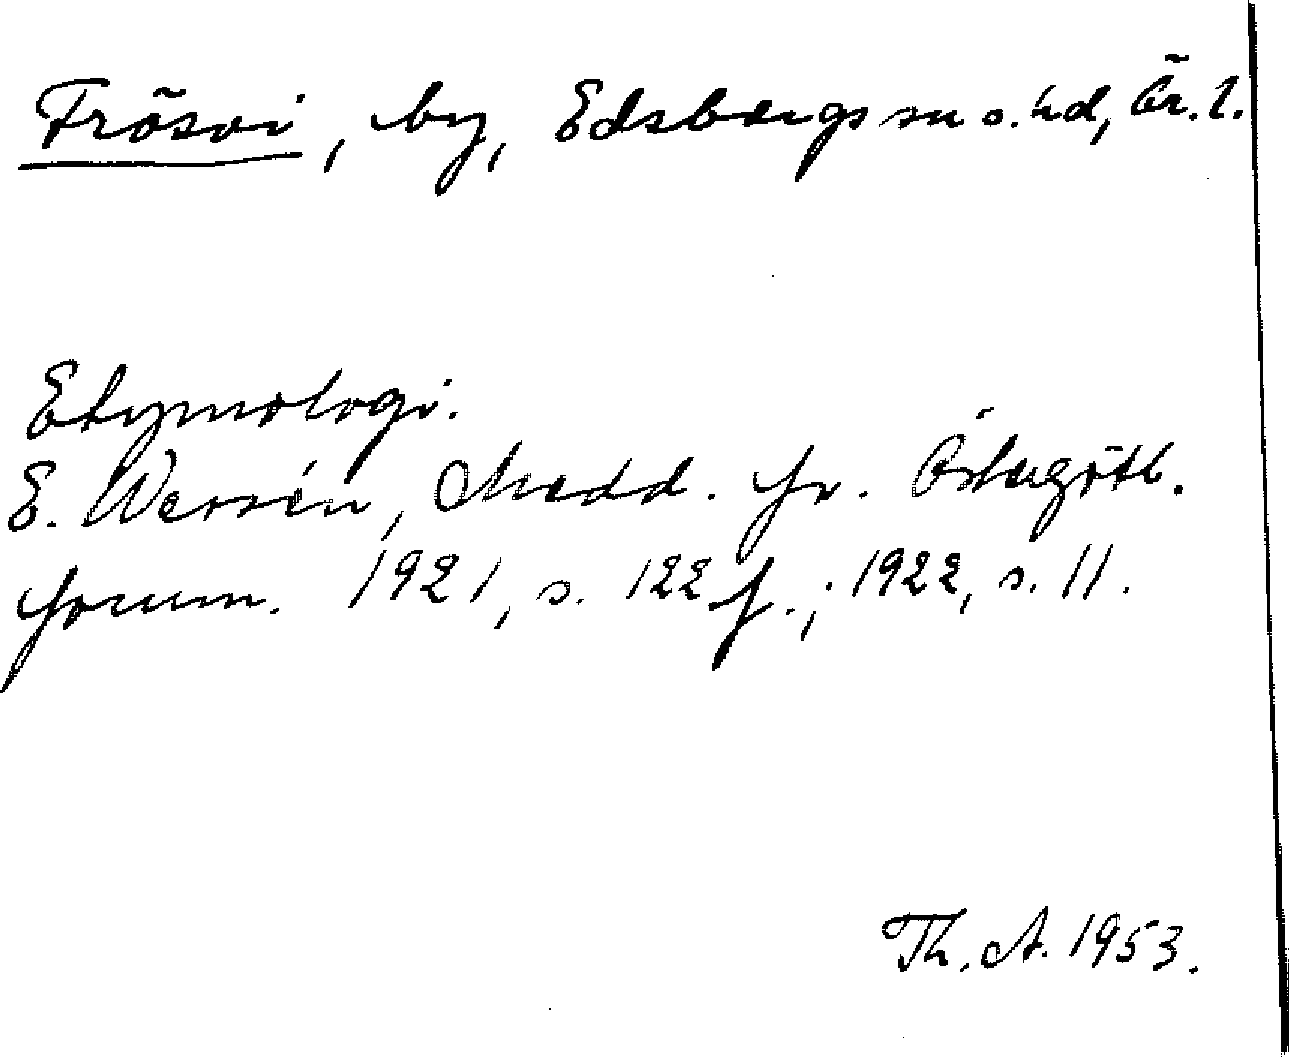 Frösvi, by, Edsbergs sn o. hd, Ör. l.
Etymologi.
E. Wessén, Medd. fr. Östergötl.
fornm. 1921, s. 122 f.; 1922, s. 11.
Th. A. 1953.